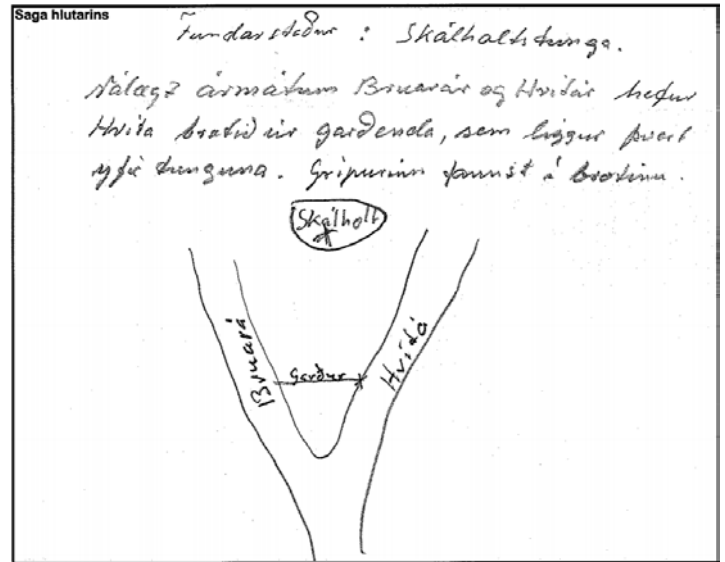 Saga hlutarins
Fundarstaður : Skálholtstunga.
Nálægt ármátum Bruarár og Hvítár hefur
Hvíta brotið úr garðenda, sem liggur þvert
yfir tunguna. Gripurinn fannst í brotinu.
Skálholt
Bruará
Garður
Hvítá